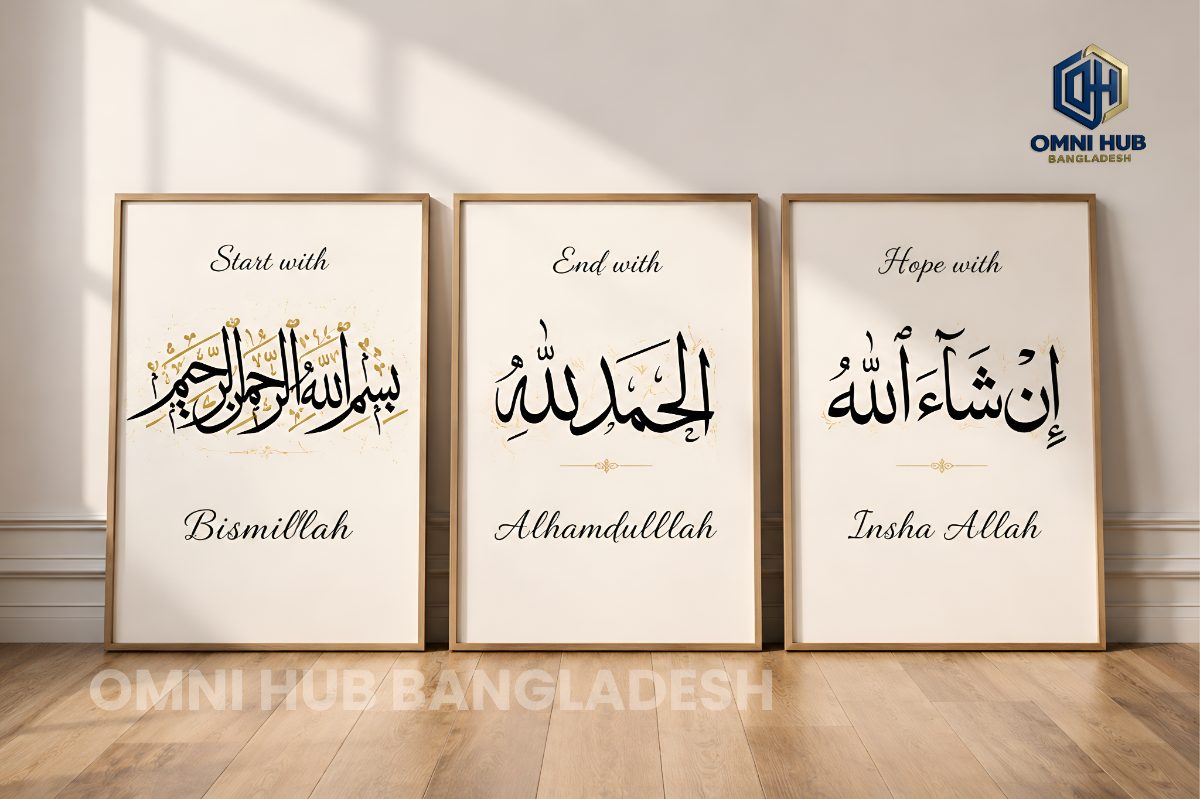 OMNI HUB
BANGLADESH
Start with
بِسْمِ اللهِ الرَّحْمٰنِ الرَّحِيْمِ
Bismil'lah
End with
الحَمدُ لِلّٰهِ
Alhamdulllah
Hope with
إِنْ شَآءَ ٱللّٰهُ
Insha Allah
OMNI HUB BANGLADESH